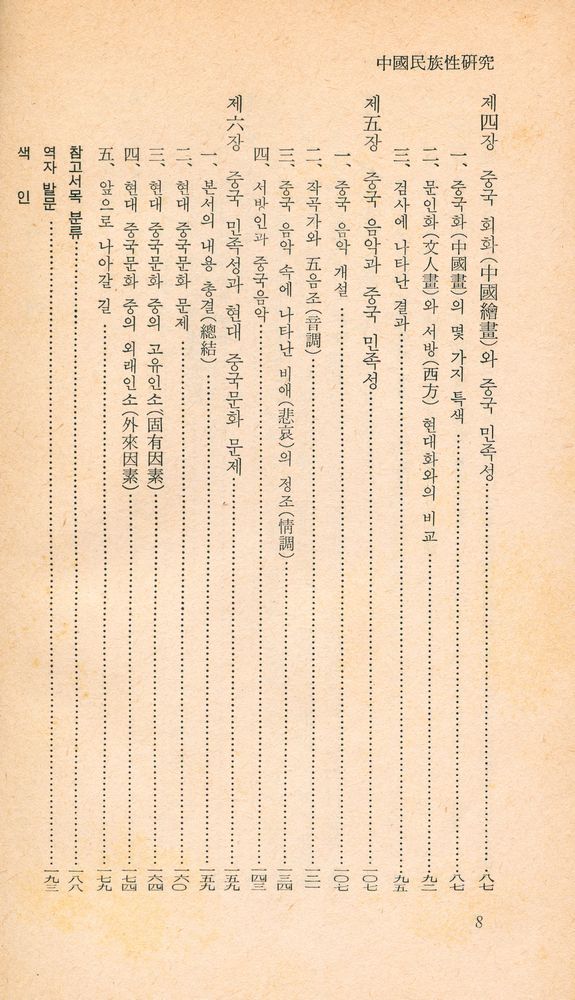 中國民族性硏究
제四장 중국 회화(中國繪畫)와 중국 민족성 八七
一、중국화(中國畫)의 몇 가지 특색 八七
二、문인화(文人畫)와 서방(西方) 현대화와의 비교 九二
三、검사에 나타난 결과 九五
제五장 중국 음악과 중국 민족성 一〇七
一、중국 음악 개설 一〇七
二、작곡가와 五음조(音調)
三、중국 음악 속에 나타난 비애(悲哀)의 정조(情調)
四、서방인과 중국음악 一四三
제六장 중국 민족성과 현대 중국문화 문제 一五九
一、본서의 내용 총결(總結) 一五九
二、현대 중국문화 문제 一六〇
三、현대 중국문화 중의 고유인소(固有因素) 一六四
四、현대 중국문화 중의 외래인소(外來因素) 一七四
五、앞으로 나아갈 길 一七九
참고서목 분류 一八八
역자 발문 一九三
색 인
8